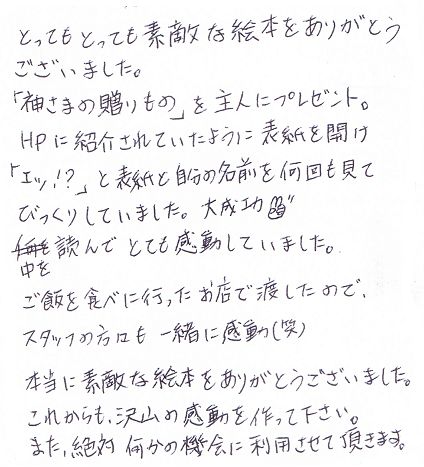 とってもとっても素敵な絵本をありがとう
ございました。
「神さまの贈りもの」を主人にプレゼント。
HPに紹介されていたように表紙を開け
「エッ!?」と表紙と自分の名前を何回も見て
びっくりしていました。大成功
中を読んでとても感動していました。
ご飯を食べに行ったお店で渡したので、
スタッフの方にも一緒に感動(笑)
本当に素敵な絵本をありがとうございました。
これからも、沢山の感動を作って下さい。
また、絶対何かの機会に利用させて頂きます。